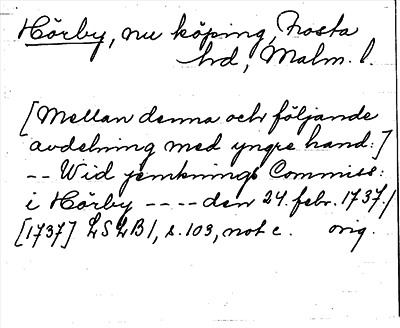 Hörby, nu köping, Frosta
hd, Malm. l.
[Mellan denna och följande
avdelning med yngre hand:]
-- Wid jemknings Commiss:
i Hörby ---- den 24. febr. 1737./
[1737] LSLB 1, s. 103, not c. orig.